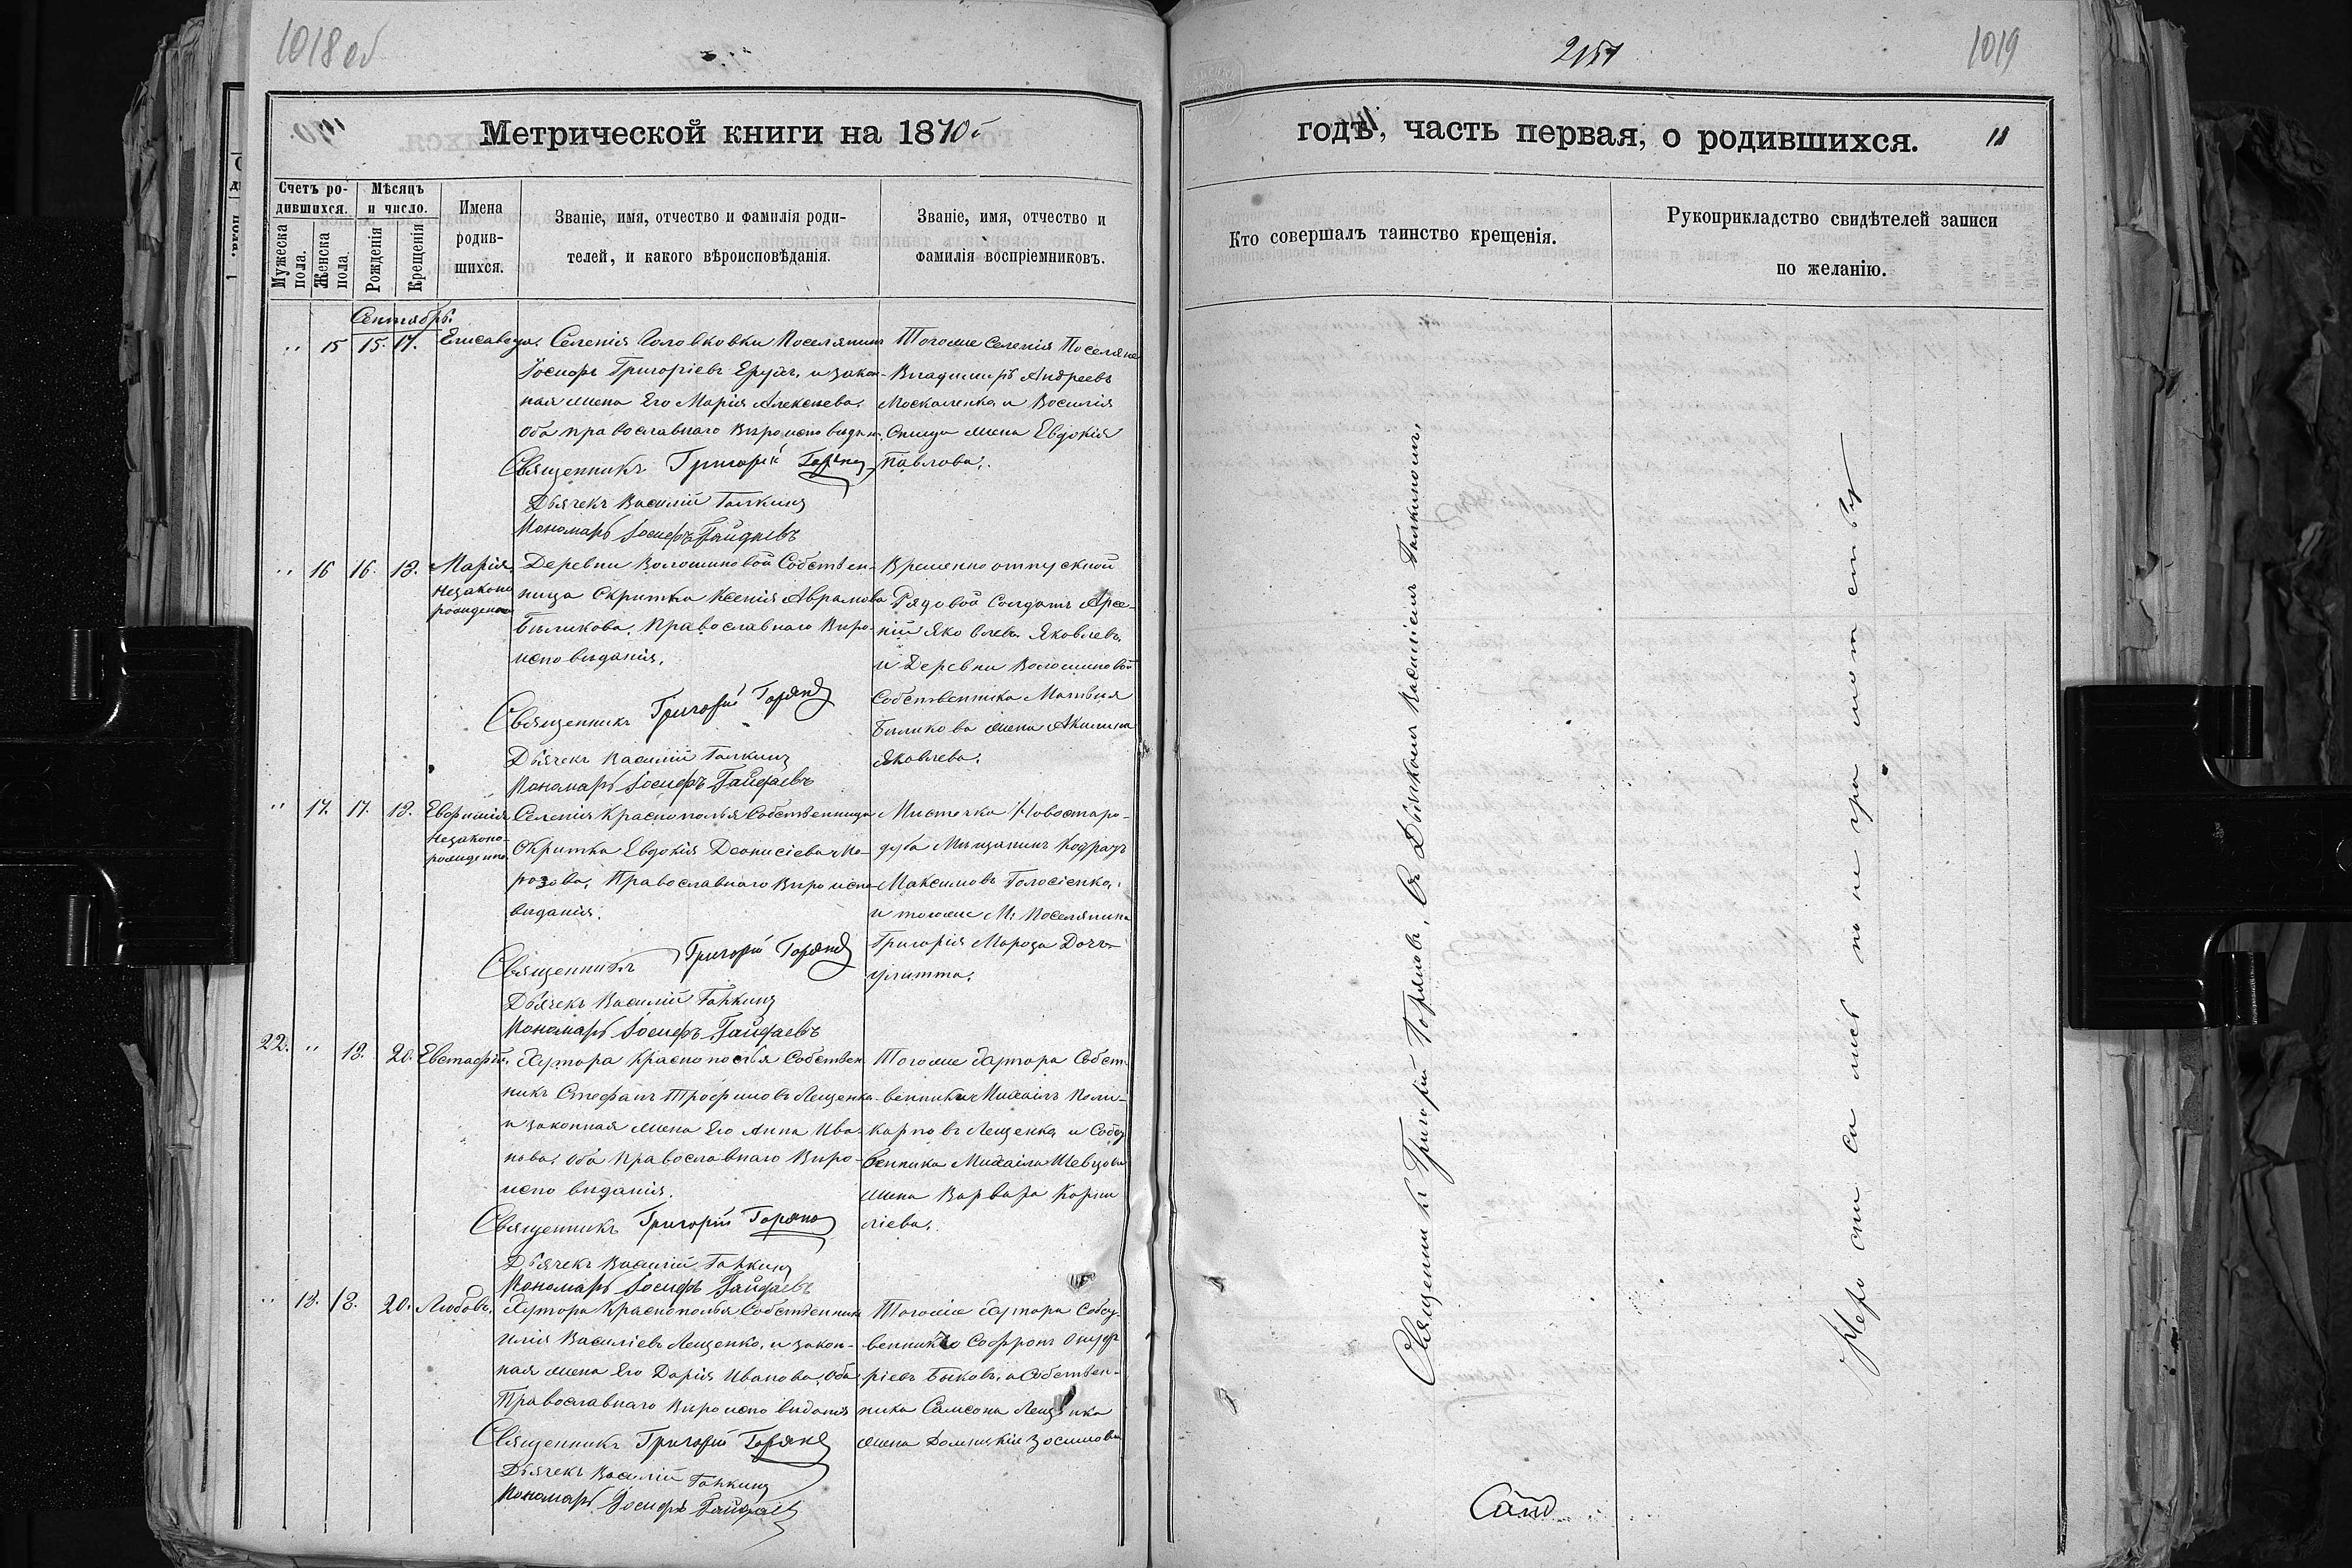 1018 об
2151
1019
Метрической книги на 1870й
годъ, часть первая, о родившихся.
11
Счетъ ро-
дившихся.
Мѣсяцъ
и число.
Имена
родив-
шихся.
Званіе, имя, отчество и фамилія роди-
телей, и какого вѣроисповѣданія.
Званіе, имя, отчество и
фамилія воспріемниковъ.
Мужеска
пола.
Женска
пола.
Рожденія
Крещенія
Кто совершалъ таинство крещенія.
Рукоприкладство свидѣтелей записи
по желанію.
Сентябрь.
" 15 15. 17. Елисавета. Селенія Головковки Поселянинъ
Іосифъ Григоріевъ и закон-
ная жена Его Марія Алексѣева,
Оба православнаго Вѣроисповѣдан.
Священникъ Григорій
Дьячекъ Василій Галкинъ
Пономарь Іосифъ Гайдаевъ
Тогоже Селенія Поселяне
Владимиръ Андреевъ
Москаленка и Василія
жена Евдокія
Павлова.
" 16 16. 18. Марія
незаконно
рожденная
Деревни Волошиновой Собствен-
ница Скритка Ксенія Аврамова
Быликова, Православнаго Вѣро-
исповѣданія.
Священникъ Григорій
Дьячекъ Василій Галкинъ
Пономарь Іосифъ Гайдаевъ
Временно отпускной
Рядовой Солдатъ Арсе-
ній Яковлевъ Яковлевъ
и Деревни Волошиновой
Собственника Матвѣя
Быликова жена Акилина
Яковлева.
" 17. 17. 18. Евфимія
незаконо-
рожденна.
Селенія Краснополья Собственница
Скритка Евдокія Деонисіева Мо-
розова, Православнаго Вѣроиспо-
вѣданія.
Священникъ Григорій
Дьячекъ Василій Галкинъ
Пономарь Іосифъ Гайдаевъ
Мѣстечка Новостаро-
дуба Мѣщанинъ Кодратъ
Максимовъ Голосіенко,
и тогоже М: Поселянина
Григорія Мороза Дочь
Улитта.
22. " 18. 20. Евстафій. Хутора Краснополья Собствен-
никъ Стефанъ Трофимовъ Лещенко
и законная жена Его Анна Ива-
нова, оба Православнаго Вѣро-
исповѣданія.
Священникъ Григорій
Дьячекъ Василій Галкинъ
Пономарь Іосифъ Гайдаевъ
Тогоже Хутора Собст-
венникъ Михаилъ Поли-
карповъ Лещенко и Собст
венника Михаила Шевцова
жена Варвара Корни
ліева.
" 18. 18. 20. Любовь. Хутора Краснополья Собственникъ
Илія Василіевъ Лещенко, и закон-
ная жена Его Дарія Иванова, Оба
Православнаго Вѣроисповѣданія
Священникъ Григорій
Дьячекъ Василій Галкинъ
Пономарь Іосифъ Гайдаевъ
Тогоже Хутора Собст-
венникъ Софронъ Онуф
ріевъ Быковъ, и Собствен-
ника Самсона Лещенка
жена Домникія Зосимова
Священникъ Григорій Съ Дьячкомъ Василіемъ Галкиномъ,
по неграмотству